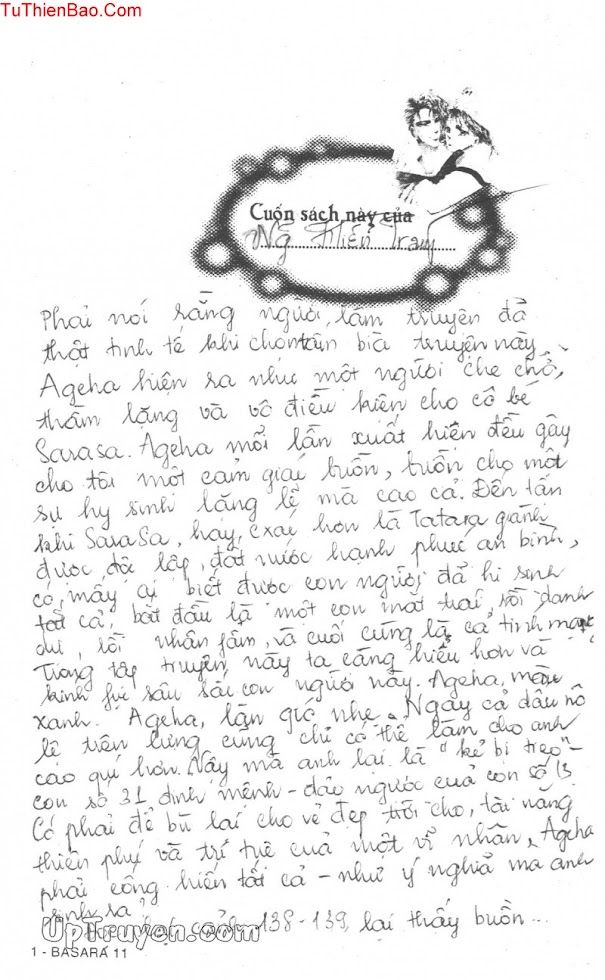 TuThienBao.Com
Cuốn sách này của
Ng Hiền Trang
Phải nói rằng người làm truyện đã
thật tinh tế khi chọn bìa truyện này
Ageha hiện ra như một người che chở,
thầm lặng và vô điều kiện cho cô bé
Sarasa. Ageha mỗi lần xuất hiện đều gây
cho tôi một cảm giác buồn, buồn cho một
sự hy sinh lặng lẽ mà cao cả. Đến tận
khi SaraSa, hay, cxác hơn là Tatara giành
được độc lập, đất nước hạnh phúc an bình,
có mấy ai biết được con người đã hi sinh
tất cả, bắt đầu là một con mắt trái, rồi danh
dự, rồi nhân fẩm, và cuối cùng là cả tính mạng
Trong tập truyện này ta càng hiểu hơn và
kính fục sâu sắc con người này. Ageha, màu
xanh. Ageha, làn gió nhẹ. Ngay cả dấu nô
lệ trên lưng cũng chỉ có thể làm cho anh
cao quí hơn. Vậy mà anh lại là "kẻ bị treo" -
con số 31 định mệnh - đảo ngược của con số 13
Có phải để bù lại cho vẻ đẹp trời cho, tài năng
thiên phú và trí tuệ của một vĩ nhân, Ageha
phải cống hiến tất cả - như ý nghĩa mà anh
sinh ra
cảnh 138-139, lại thấy buồn...
UpTruyen.com
1 - BASARA 11